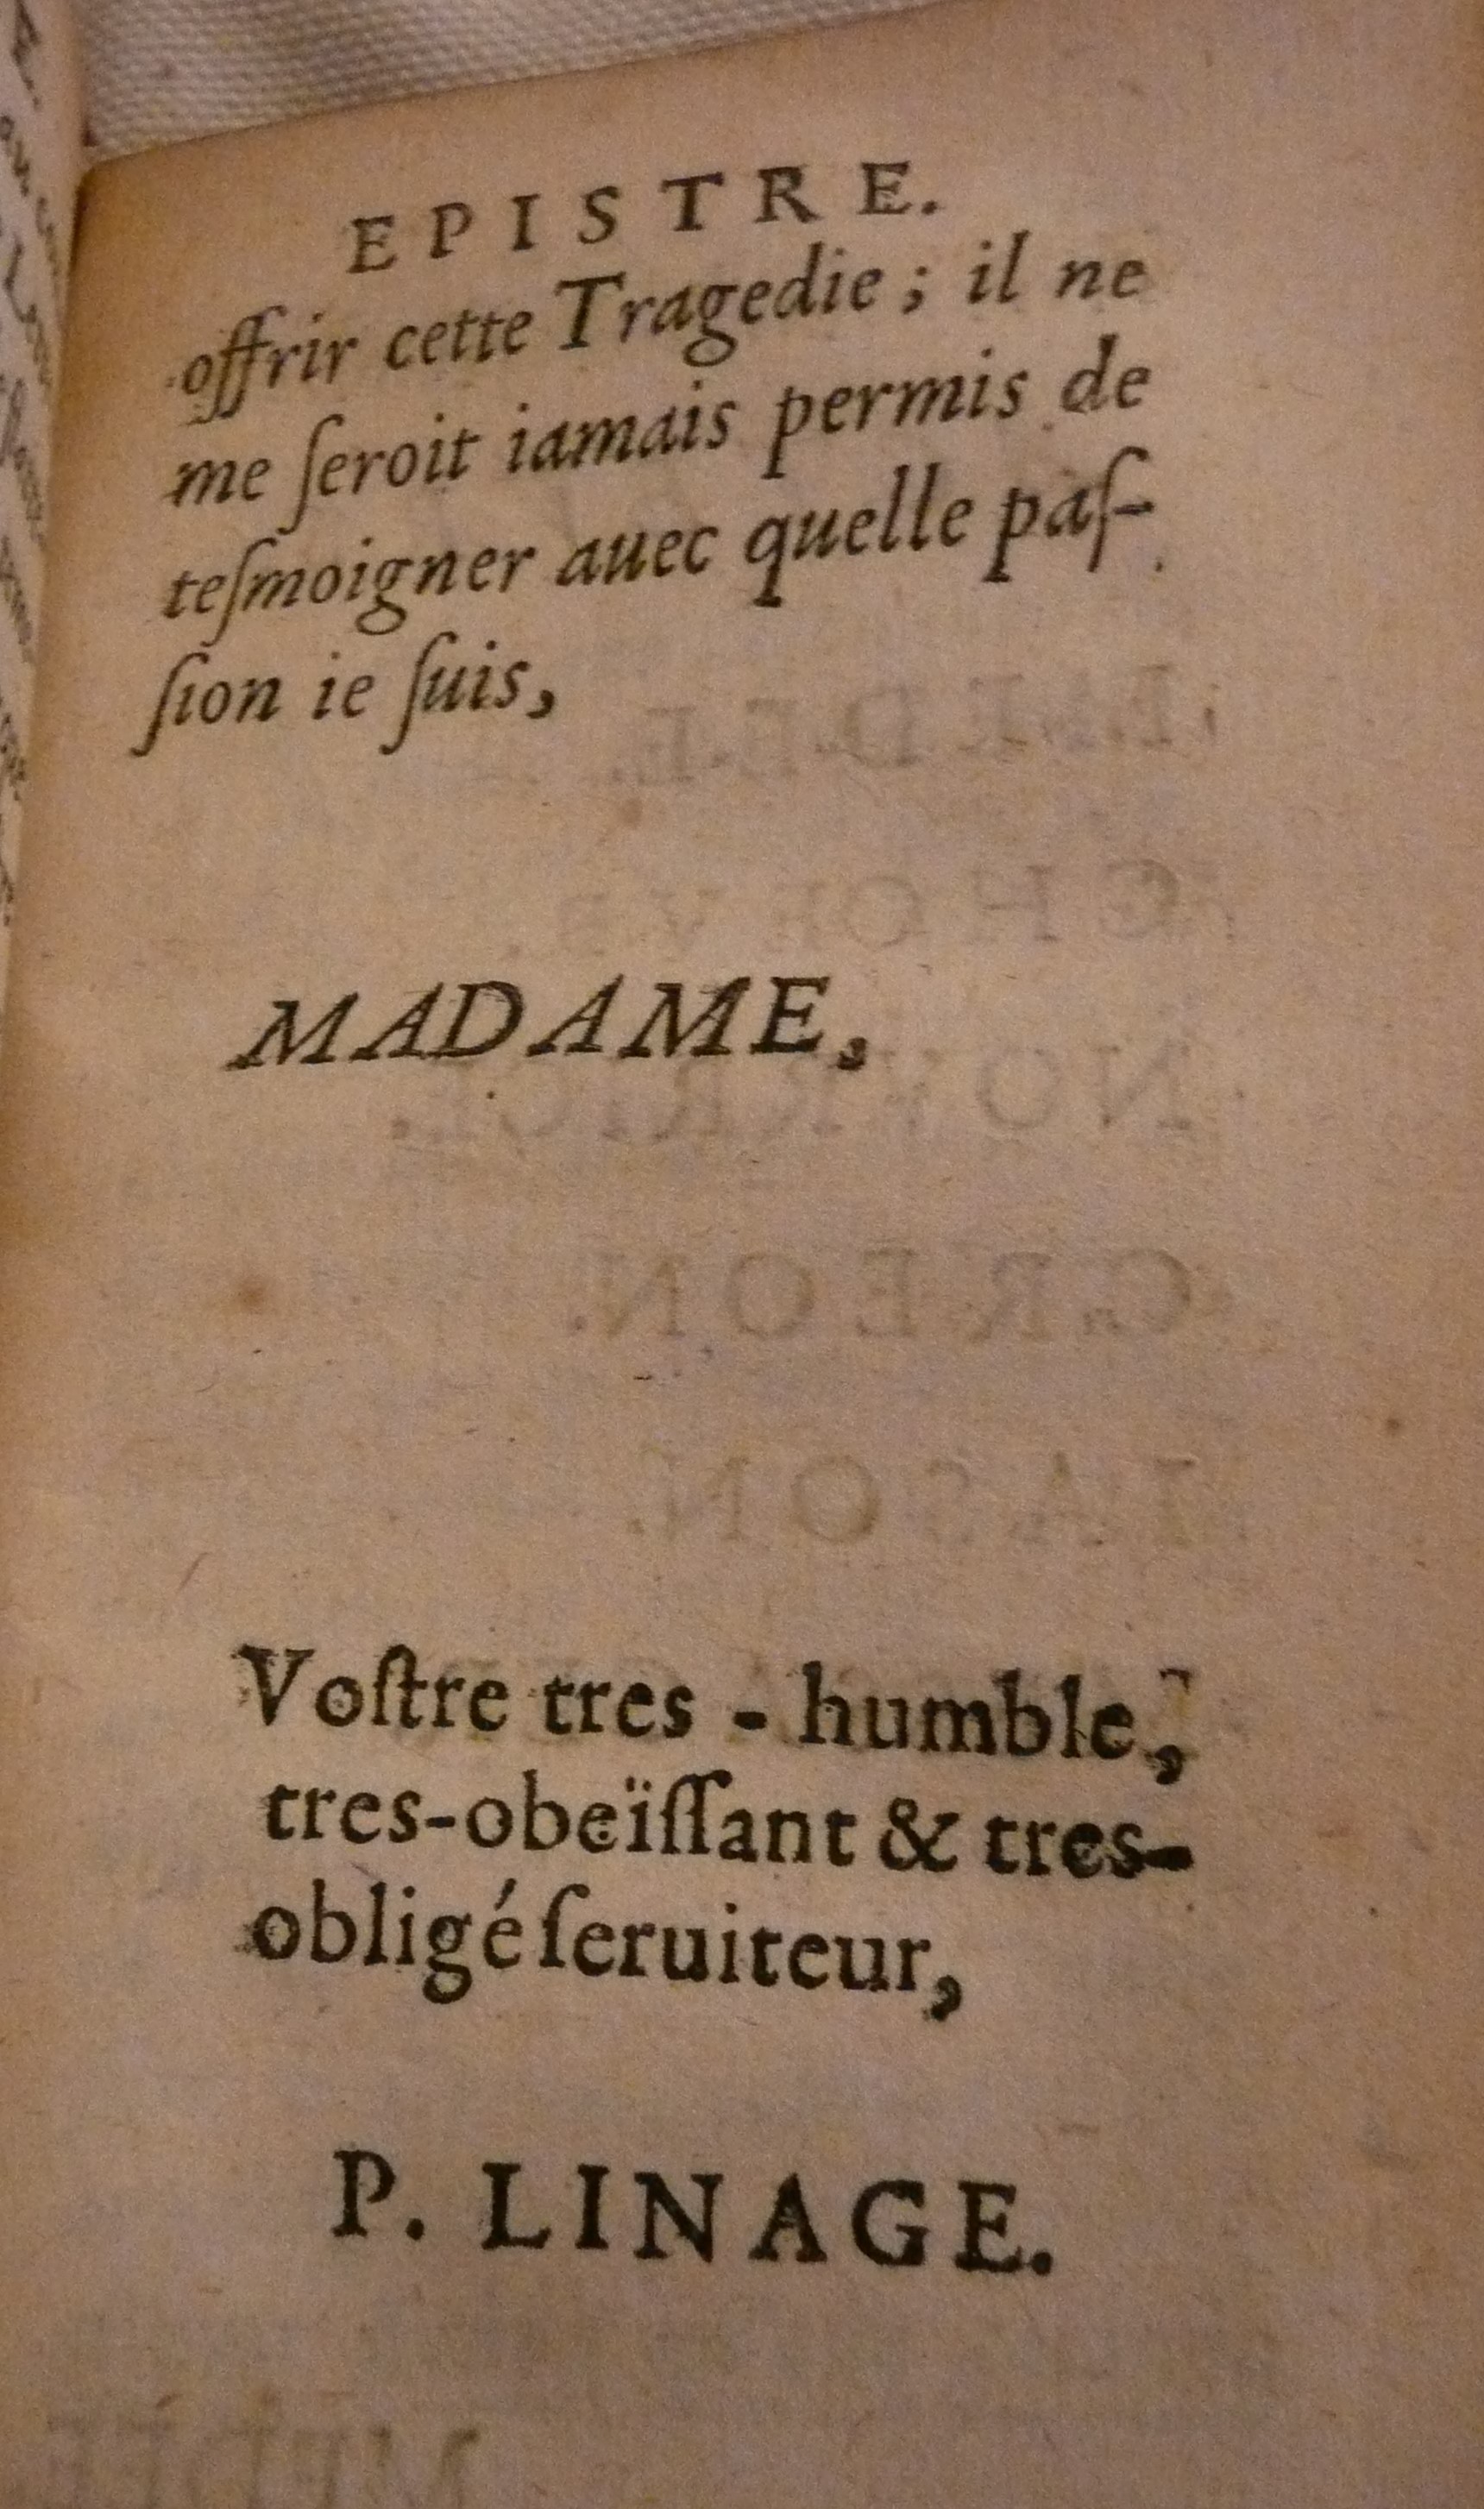 EPISTRE.
offrir cette Tragedie ; il ne
me ſeroit iamais permis de
teſmoigner auec quelle paſ-
ſion ie ſuis,
MADAME,
Voſtre tres - humble,
tres-obeïſſant & tres-
obligé ſeruiteur,
P. LINAGE.